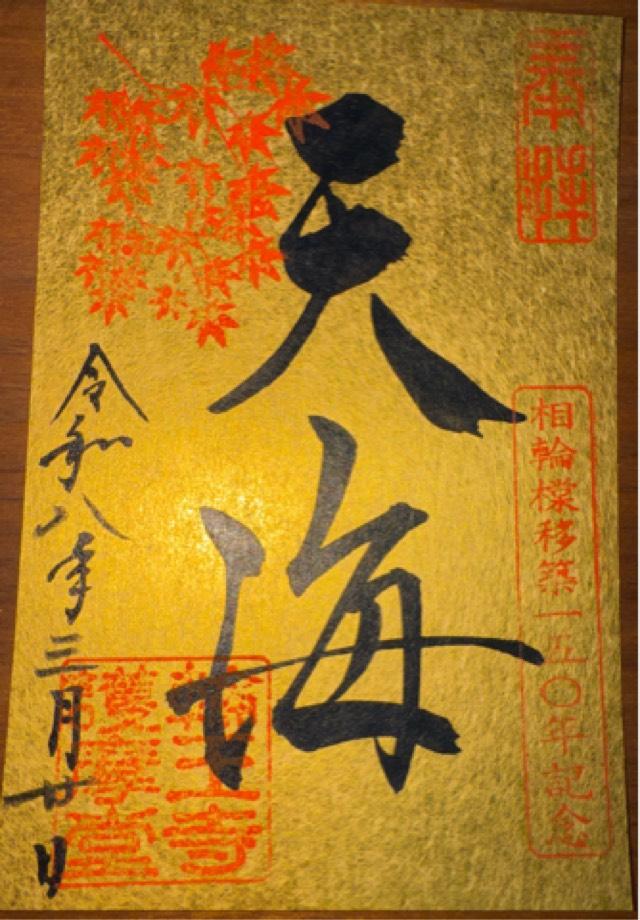 奉拝
相輪橖移築一五〇年記念
天海
輪王寺
護摩堂
令和八年三月廿日